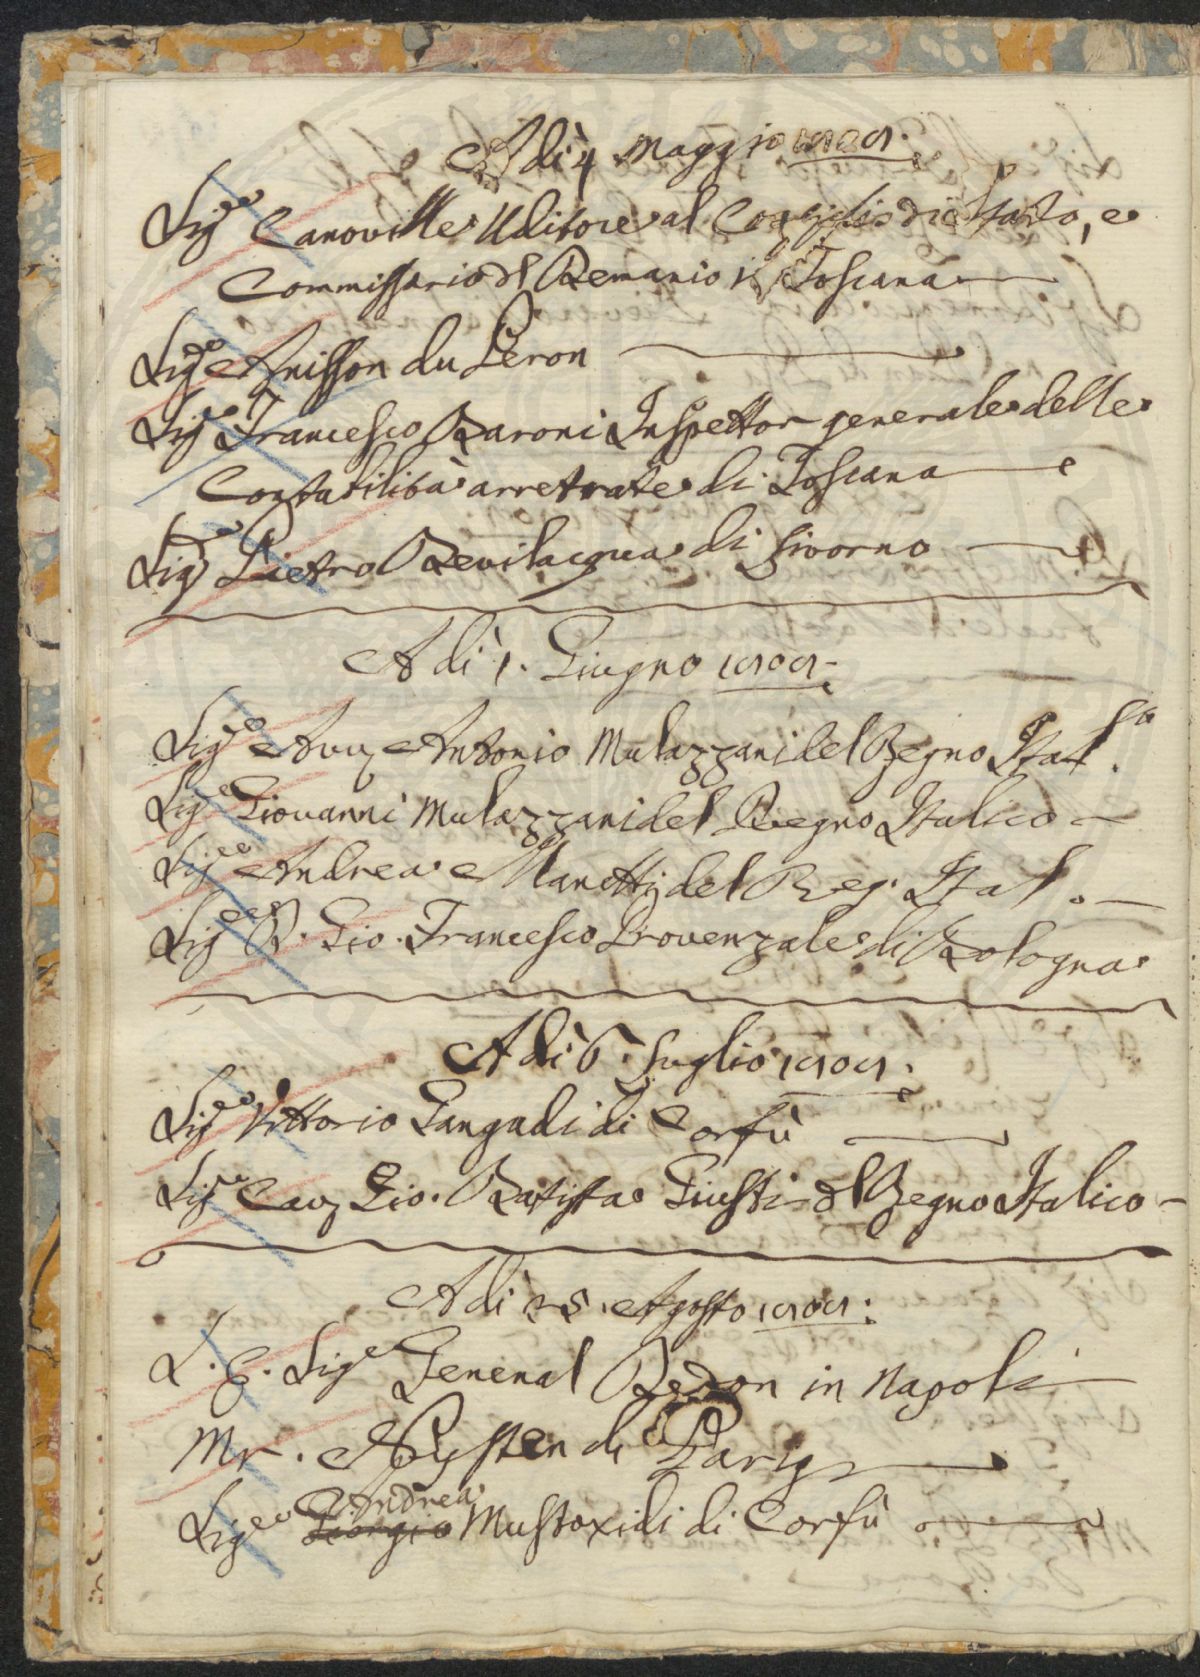 Adì 4 Maggio 1808.
Sig.re Canoville Uditore al Consiglio di Stato, e
Commissario d'l Demanio in Toscana
Sig.re Anisson du Peron
Sig.re Francesco Baroni Inspettor generale delle
Contabilità arretrate di Toscana
Sig.re Pietro Bevilacqua di Livorno
Adì 1. Giugno 1808.
Sig.re Avv. Antonio Mulazzani del Regno Ital.co
Sig.re Giovanni Mulazzani del Regno Italico
Sig.re Andrea Manetti del Reg. Ital.
Sig.re D. Gio. Francesco Provenzale di Bologna
Adì 6. Luglio 1808.
Sig.re Vittorio Gangadi di Corfù
Sig.re Cav. Gio. Batista Giusti d'l Regno Italico
Adì 25. Agosto 1808:
S. E. Sig.e General Dedon in Napoli
Mr. Nysten di Parigi
Sig.re Giorgio Andrea Mustoxidi di Corfù